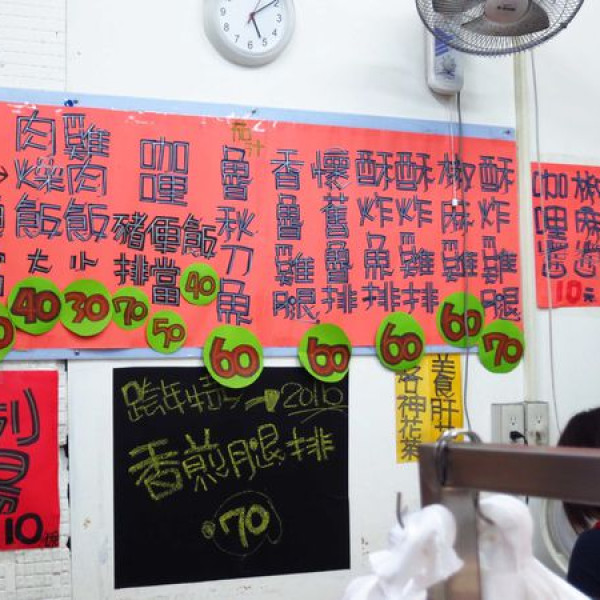 肉燥飯
大
40
雞肉飯
小
30
咖哩
豬排 70
便當 50
飯 40
茄汁
魯秋刀魚
60
香魯雞腿
懷舊魯排
60
酥炸魚排
酥炸雞排
60
椒麻雞排
60
酥炸雞腿
70
咖哩醬
椒麻醬
10元
美食
各神花茶
湯
10
跨年特 2010
香煎腿排
70